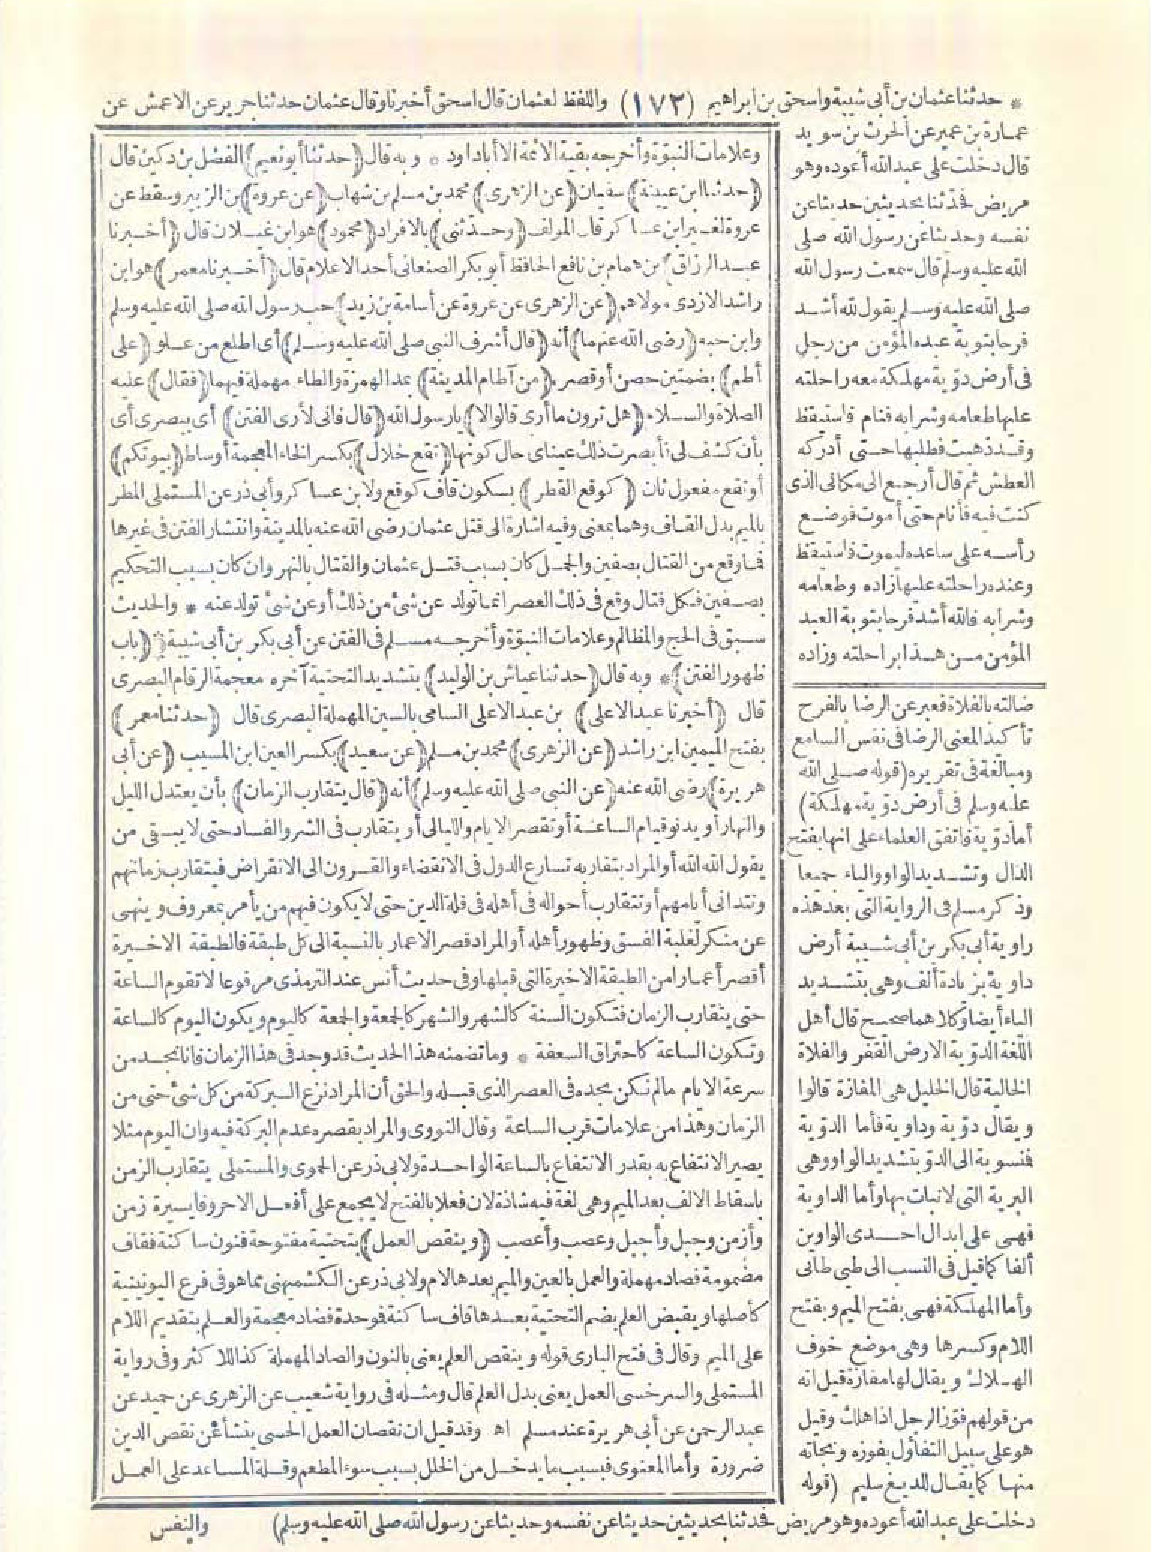 * حدثنا عثمان بن أبي شيبة واسحق بن ابراهيم (١٧٢) واللفظ لعثمان قال اسحق أخبرنا وقال عثمان حدثنا جرير عن الاعمش عن
عمارة بن عمير عن الحرث بن سويد
قال دخلت على عبد الله أعوده وهو
مريض فحدثنا بحديثين حديثا عن
نفسه وحديثا عن رسول الله صلى
الله عليه وسلم قال سمعت رسول الله
صلى الله عليه وسلم يقول لله أشد
فرحا بتوبة عبده المؤمن من رجل
فى أرض دوية مهلكة معه راحلته
عليها طعامه وشرابه فنام فاستيقظ
وقد ذهبت فطلبها حتى أدركه
العطش ثم قال أرجع الى مكانى الذى
كنت فيه فأنام حتى أموت فوضع
رأسه على ساعده ليموت فاستيقظ
وعنده راحلته عليها زاده وطعامه
وشرابه فالله أشد فرحا بتوبة العبد
المؤمن من هذا براحلته وزاده
ضالته بالفلاة فعبر عن الرضا بالفرح
تأكيدا لمعنى الرضا فى نفس السامع
ومبالغة فى تقريره (قوله صلى الله
عليه وسلم فى أرض دوية مهلكة)
أما دوية فاتفق العلماء على انها بفتح
الدال وتشديد الواو والياء جميعا
وذكر مسلم فى الرواية التى بعد هذه
رواية أبى بكر بن أبى شيبة أرض
داوية بزيادة ألف وهى بتشديد
الياء أيضا وكلاهما صحيح قال أهل
اللغة الدوية الارض القفر والفلاة
الخالية قال الخليل هى المفازة قالوا
ويقال دوية وداوية فأما الدوية
فنسوبة الى الدو بتشديد الواو وهى
البرية التى لا نبات بها وأما الداوية
فهى على ابدال احدى الواوين
ألفا كما قيل فى النسب الى طيئ طائى
وأما المهلكة فهى بفتح الميم وبفتح
اللام وكسرها وهى موضع خوف
الهلاك ويقال لها مفازة قيل انه
من قولهم فوز الرجل اذا هلك وقيل
هو على سبيل التفاؤل بفوزه ونجاته
منها كما يقال للديغ سليم (قوله
دخلت على عبد الله أعوده وهو مريض فحدثنا بحديثين حديثا عن نفسه وحديثا عن رسول الله صلى الله عليه وسلم)
وعلامات النبوة وأخرجه بقية الائمة الا أبا داود * وبه قال (حدثنا أبو نعيم) الفضل بن دكين قال
(حدثنا ابن عيينة) سفيان (عن الزهرى) محمد بن مسلم بن شهاب (عن عروة) بن الزبير وسقط عن
عروة لغير ابن عساكر قال المؤلف (وحدثنى) بالافراد (محمود) هو ابن غيلان قال (أخبرنا
عبد الرزاق) بن همام بن نافع الحافظ أبو بكر الصنعانى أحد الاعلام قال (أخبرنا معمر) هو ابن
راشد الازدى مولاهم (عن الزهرى عن عروة عن أسامة بن زيد) حب رسول الله صلى الله عليه وسلم
وابن حبه (رضى الله عنهما) أنه (قال أشرف النبى صلى الله عليه وسلم) أى اطلع من علو (على
أطم) بضمتين حصن أو قصر (من آطام المدينة) بمد الهمزة والطاء مهملة فيهما (فقال) عليه
الصلاة والسلام (هل ترون ما أرى قالوا لا) يا رسول الله (قال فانى لأرى الفتن) أى ببصرى أى
بأن كشف لى فأبصرت ذلك عيناى حال كونها (تقع خلال) بكسر الخاء المعجمة أوساط (بيوتكم)
أو تقع مفعول ثان (كوقع القطر) بسكون قاف كوقع ولابن عساكر وأبى ذر عن المستملى المطر
بالميم بدل القاف وهما بمعنى وفيه اشارة الى قتل عثمان رضى الله عنه بالمدينة وانتشار الفتن فى غيرها
فما وقع من القتال بصفين والجمل كان بسبب قتل عثمان والقتال بالنهروان كان بسبب التحكيم
بصفين فكل قتال وقع فى ذلك العصر انما تولد عن شئ من ذلك أو عن شئ تولد عنه * والحديث
سبق فى الحج والمظالم وعلامات النبوة وأخرجه مسلم فى الفتن عن أبى بكر بن أبى شيبة (باب
ظهور الفتن) * وبه قال (حدثنا عياش بن الوليد) بتشديد التحتية آخره معجمة الرقام البصرى
قال (أخبرنا عبد الاعلى) بن عبد الاعلى السامى بالسين المهملة البصرى قال (حدثنا معمر)
بفتح الميمين ابن راشد (عن الزهرى) محمد بن مسلم (عن سعيد) بكسر العين ابن المسيب (عن أبى
هريرة) رضى الله عنه (عن النبى صلى الله عليه وسلم) أنه (قال يتقارب الزمان) بأن يعتدل الليل
والنهار أو يدنو قيام الساعة أو تقصر الايام والليالى أو يتقارب فى الشر والفساد حتى لا يبقى من
يقول الله الله أو المراد بتقاربه تسارع الدول فى الانقضاء والقرون الى الانقراض فيتقارب زمانهم
وتتدانى أيامهم أو تتقارب أحواله فى أهله فى قلة الدين حتى لا يكون فيهم من يأمر بمعروف وينهى
عن منكر لغلبة الفسق وظهور أهله أو المراد قصر الاعمار بالنسبة الى كل طبقة فالطبقة الاخيرة
أقصر أعمارا من الطبقة الاخيرة التى قبلها وفى حديث أنس عند الترمذى مرفوعا لا تقوم الساعة
حتى يتقارب الزمان فتكون السنة كالشهر والشهر كالجمعة والجمعة كاليوم ويكون اليوم كالساعة
وتكون الساعة كاحتراق السعفة * وما تضمنه هذا الحديث قد وجد فى هذا الزمان فانا نجد من
سرعة الايام ما لم تكن نجده فى العصر الذى قبله والحق أن المراد نزع البركة من كل شئ حتى من
الزمان وهذا من علامات قرب الساعة وقال النووى والمراد بقصره عدم البركة فيه وان اليوم مثلا
يصير الانتفاع به بقدر الانتفاع بالساعة الواحدة ولابى ذر عن الحموى والمستملى يتقارب الزمن
باسقاط الالف بعد الميم وهى لغة فيه شاذة لان فعلا بالفتح لا يجمع على أفعل الا حروفا يسيرة زمن
وأزمن وجبل وأجبل وعصب وأعصب (وينقص العمل) بتحتية مفتوحة فنون ساكنة فقاف
مضمومة فصاد مهملة والعمل بالعين والميم بعدها لام ولابى ذر عن الكشميهنى مما هو فى فرع اليونينية
كأصلها ويقبض العلم بضم التحتية بعدها قاف ساكنة فموحدة فضاد معجمة والعلم بتقديم اللام
على الميم وقال فى فتح البارى قوله وينقص العلم يعنى بالنون والصاد المهملة كذا للاكثر وفى رواية
المستملى والسرخسى العمل يعنى بدل العلم قال ومثله فى رواية شعيب عن الزهرى عن حميد عن
عبد الرحمن عن أبى هريرة عند مسلم اه وقد قيل ان نقصان العمل الحسى ينشأ عن نقص الدين
ضرورة وأما المعنوى فبسبب ما يدخل من الخلل بسبب سوء المطعم وقلة المساعد على العمل
والنفس